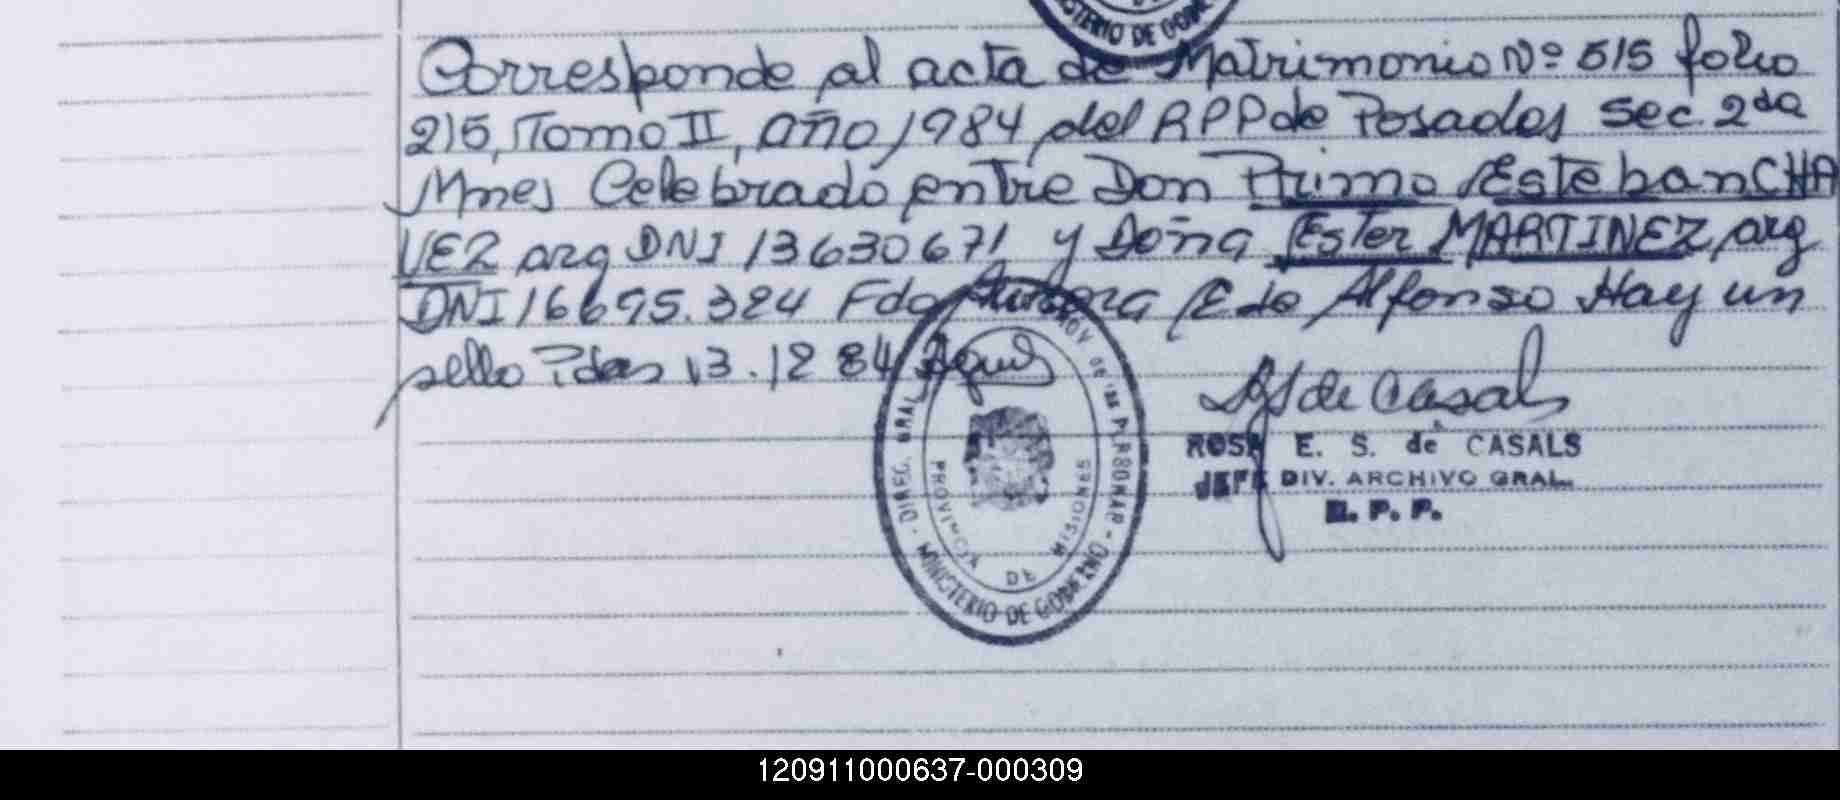 MINISTERIO DE GOBIE
Corresponde al acta de Matrimonio Nº 515 folio
215, Tomo II, año 1984 del RPP de Posadas sec. 2da
Mnes Celebrado entre Don Primo Esteban CHA
VEZ arg DNI 13630671 y Doña Ester MARTINEZ, arg
DNI 16695.324 Fdo Aurora E de Alfonso Hay un
sello Pdas 13.12 84
S de Casals
ROSA E. S. de CASALS
JEFE DIV. ARCHIVO GRAL.
R. P. P.
DIREC. GRAL PROV de las PERSONAS
MINISTERIO DE GOBIERNO
PROVINCIA DE MISIONES
120911000637-000309